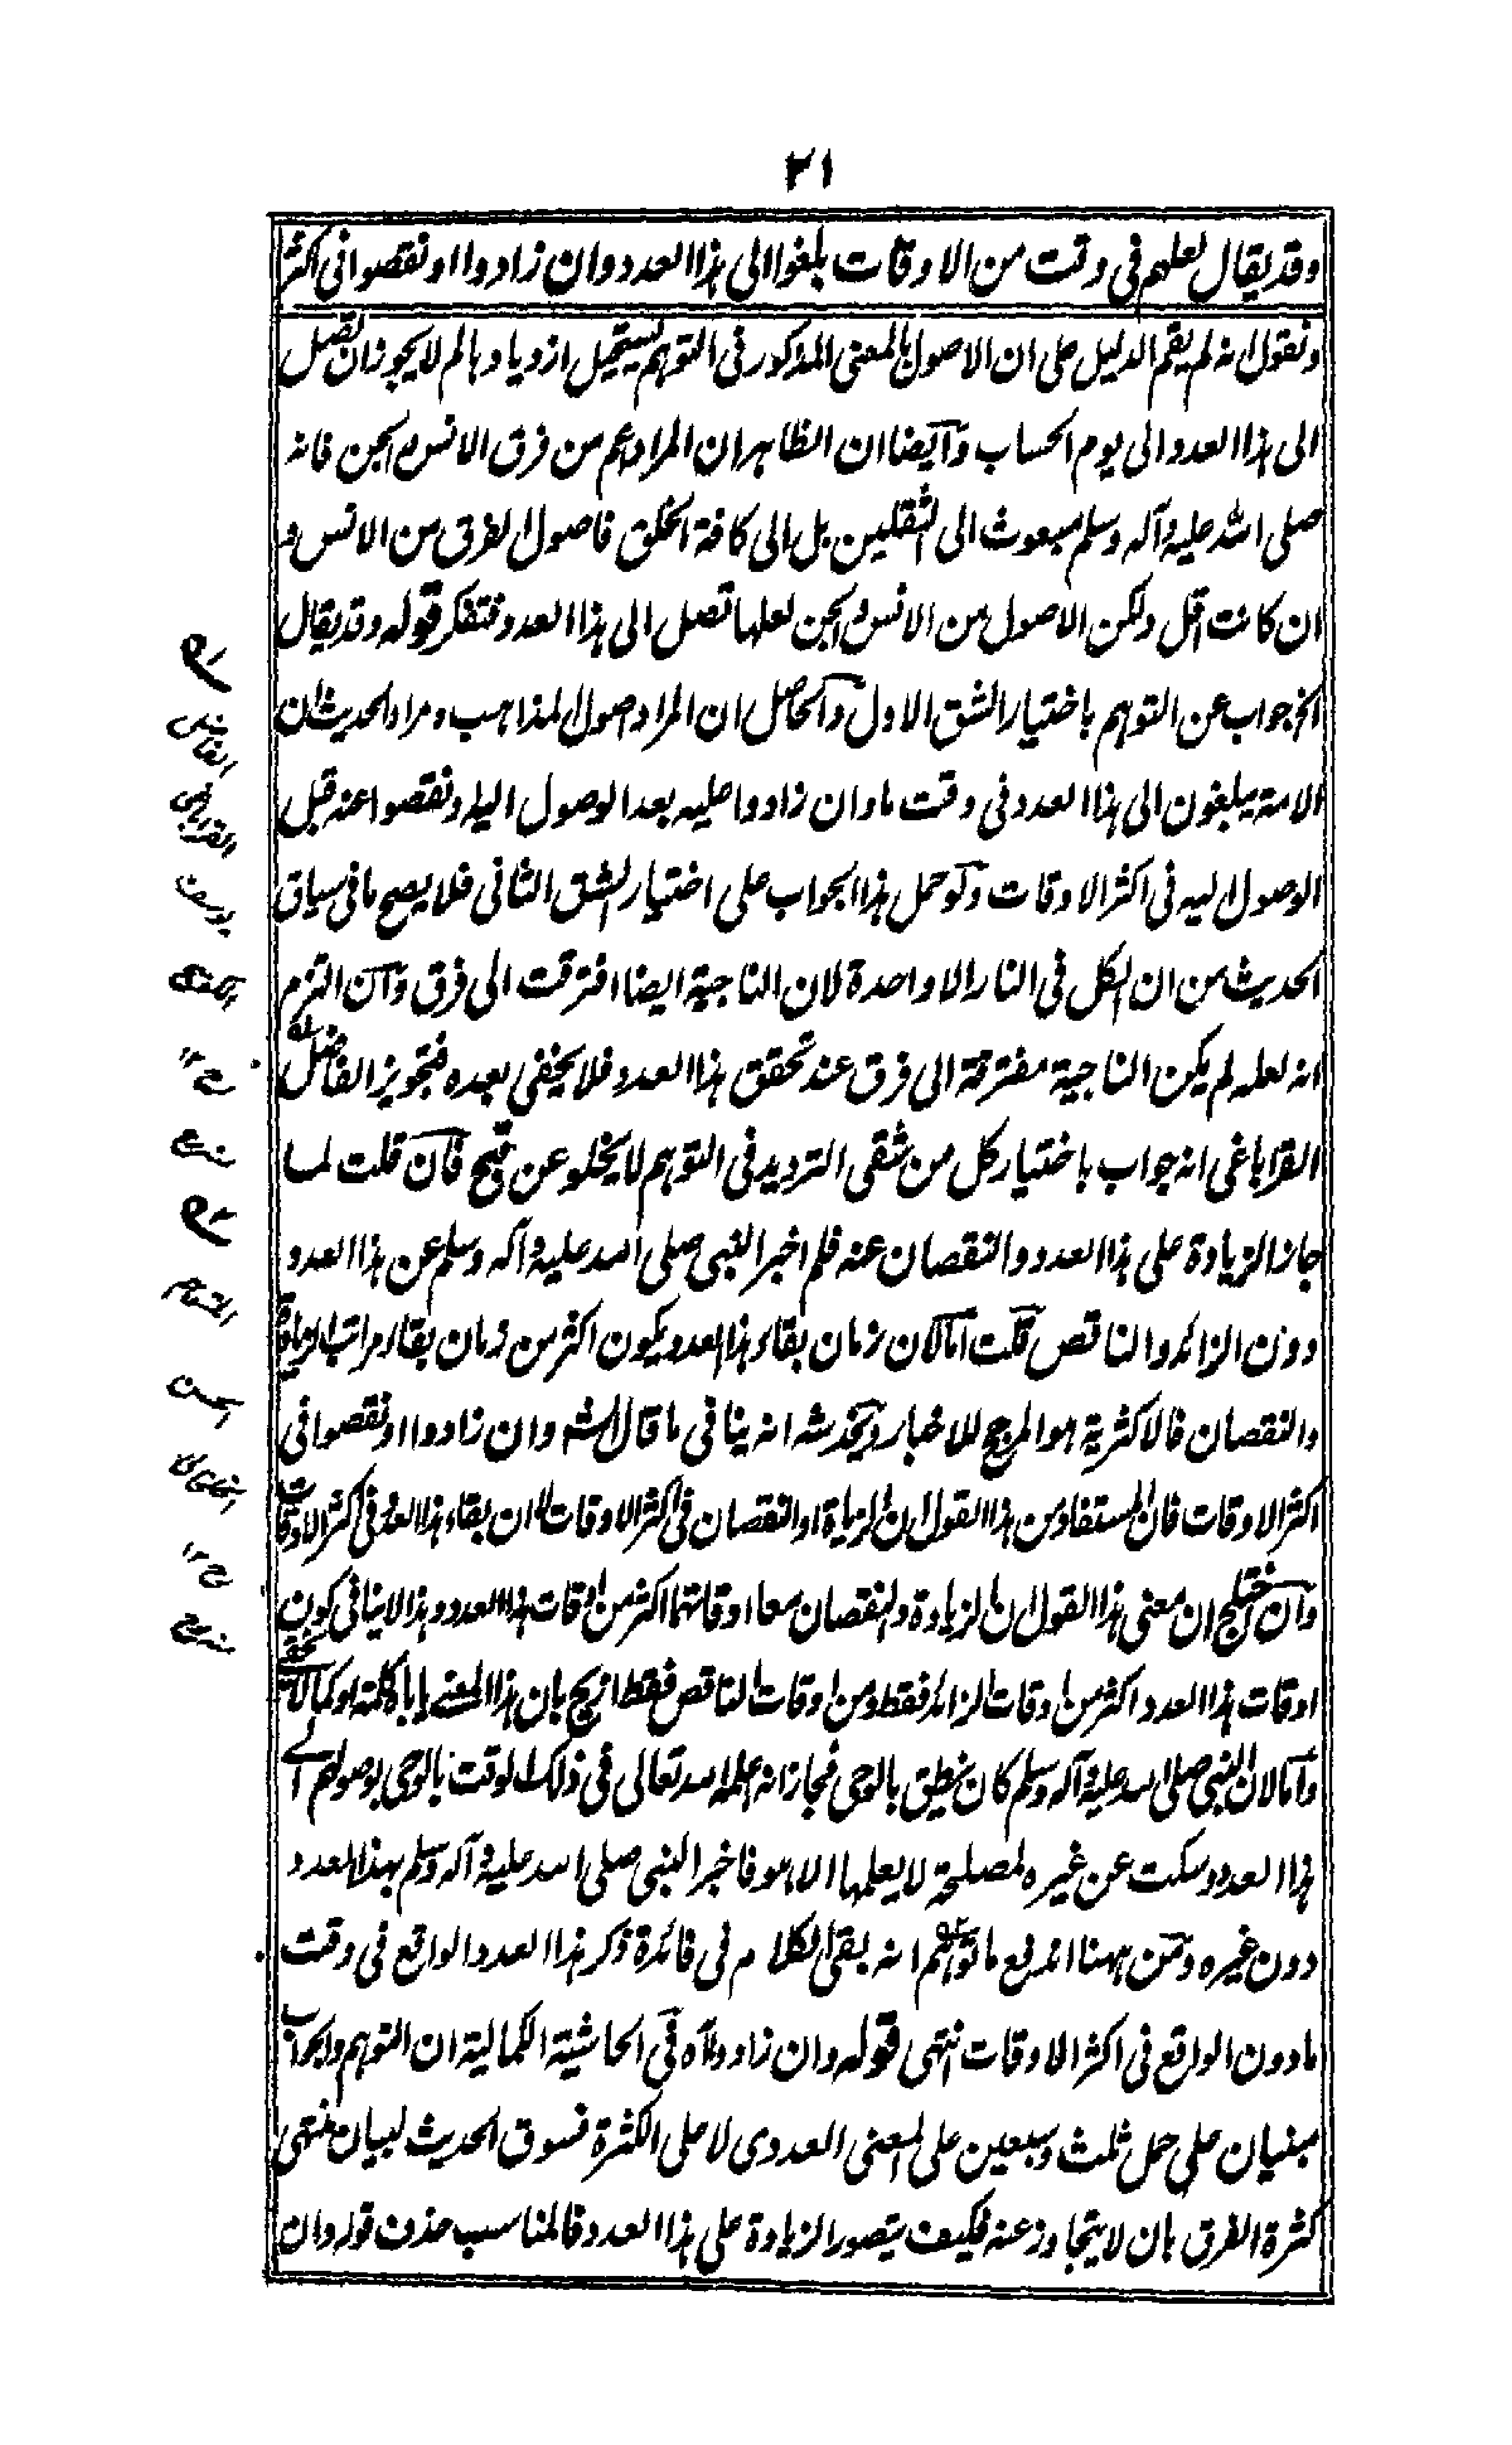 ٢١
وقد يقال لعلهم فى وقت من الاوقات بلغوا الى هذا العدد وان زادوا او نقصوا فى اكثر
ونقول انه لم يقم الدليل على ان الاصول بالمعنى المذكور فى التوهم يستحيل ازديادها لم لا يجوز ان تصل
الى هذا العدد الى يوم الحساب وايضا ان الظاهر ان المراد اعم من فرق الانس والجن فانه
صلى الله عليه وآله وسلم مبعوث الى الثقلين بل الى كافة الخلق فاصول الفرق من الانس و
ان كانت اقل ولكن الاصول من الانس والجن لعلها تصل الى هذا العدد فتفكر قوله وقد يقال
الخ جواب عن التوهم باختيار الشق الاول والحاصل ان المراد اصول المذاهب ومراد الحديث ان
الامة يبلغون الى هذا العدد فى وقت ما وان زادوا عليه بعد الوصول اليه او نقصوا عنه قبل
الوصول اليه فى اكثر الاوقات ولو حمل هذا الجواب على اختيار الشق الثانى فلا يصح ما فى سياق
الحديث من ان الكل فى النار الا واحدة لان الناجية ايضا افترقت الى فرق وان التزم
انه لعله لم يكن الناجية مفترقة الى فرق عند تحقق هذا العدد فلا يخفى بعده فتجويز الفاضل
القراباغى انه جواب باختيار كل من شقى الترديد فى التوهم لا يخلو عن قبح فان قلت لما
جاز الزيادة على هذا العدد والنقصان عنه فلم اخبر النبى صلى الله عليه وآله وسلم عن هذا العدد
دون الزائد والناقص قلت اما لان زمان بقاء هذا العدد يكون اكثر من زمان بقاء مراتب الزيادة
والنقصان فالاكثرية هو المرجح للاخبار ويخدشه انه ينافى ما قال الشه وان زادوا او نقصوا فى
اكثر الاوقات فان المستفاد من هذا القول ان الزيادة او النقصان فى اكثر الاوقات لا ان بقاء هذا العدد فى اكثر الاوقات
وان اختلج ان معنى هذا القول ان الزيادة والنقصان معا اوقاتهما اكثر من اوقات هذا العدد وهذا لا ينافى كون
اوقات هذا العدد اكثر من اوقات الزائد فقط ومن اوقات الناقص فقط ازيح بان هذا المعنى يأباه كلمة او كما لا يخفى
واما لان النبى صلى الله عليه وآله وسلم كان ينطق بالوحى فجاز انه اعلمه الله تعالى فى ذلك الوقت بالوحى بوصولهم الى
هذا العدد وسكت عن غيره لمصلحة لا يعلمها الا هو فاخبر النبى صلى الله عليه وآله وسلم بهذا العدد
دون غيره ومن ههنا اندفع ما توهم انه بقى الكلام فى فائدة ذكر هذا العدد الواقع فى وقت
ما دون الواقع فى اكثر الاوقات انتهى قوله وان زادوا آه فى الحاشية الكمالية ان التوهم والجواب
مبنيان على حمل ثلث وسبعين على المعنى العددى لا على الكثرة فسوق الحديث لبيان منتهى
كثرة الفرق بان لا يتجاوز عنه فكيف يتصور الزيادة على هذا العدد فالمناسب حذف قوله وان
الفاضل
القراباغى
يوسف
١٢
منه